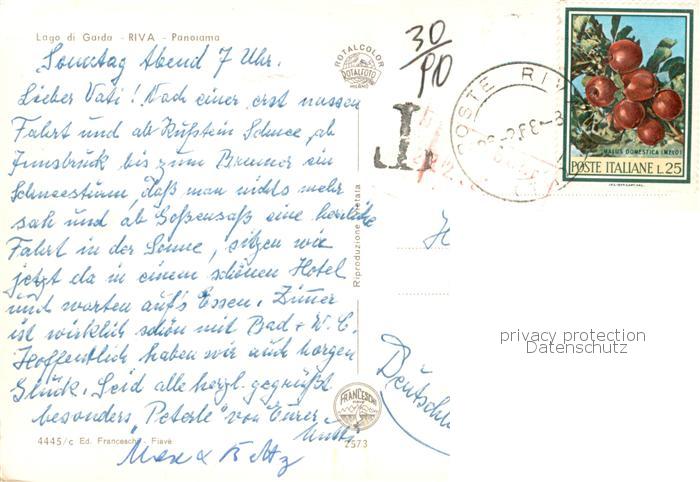 Lago di Garda - RIVA - Panorama
Sonntag Abend 7 Uhr.
Lieber Vati! Nach einer erst nassen
Fahrt und ab Kufstein Schnee, ab
Innsbruck bis zum Brenner ein
Schneesturm, daß man nichts mehr
sah und ab Goßensaß eine herrliche
Fahrt in der Sonne, sitzen wir
jetzt da in einem schönen Hotel
und warten auf's Essen. Zimmer
ist wirklich schön mit Bad + W.C.
Hoffentlich haben wir auch morgen
Glück. Seid alle herzl. gegrüßt
besonders "Peterle" von Eurer
Mutti
Max &
4445/c Ed. Franceschi - Fiavè
ROTALCOLOR
ROTALFOTO
MILANO
Riproduzione vietata
FRANCESCHI
FIAVÈ
2573
30
90
T
POSTE RIVA
MALUS DOMESTICA (MELO)
POSTE ITALIANE L.25
H
Deutschl
privacy protection
Datenschutz